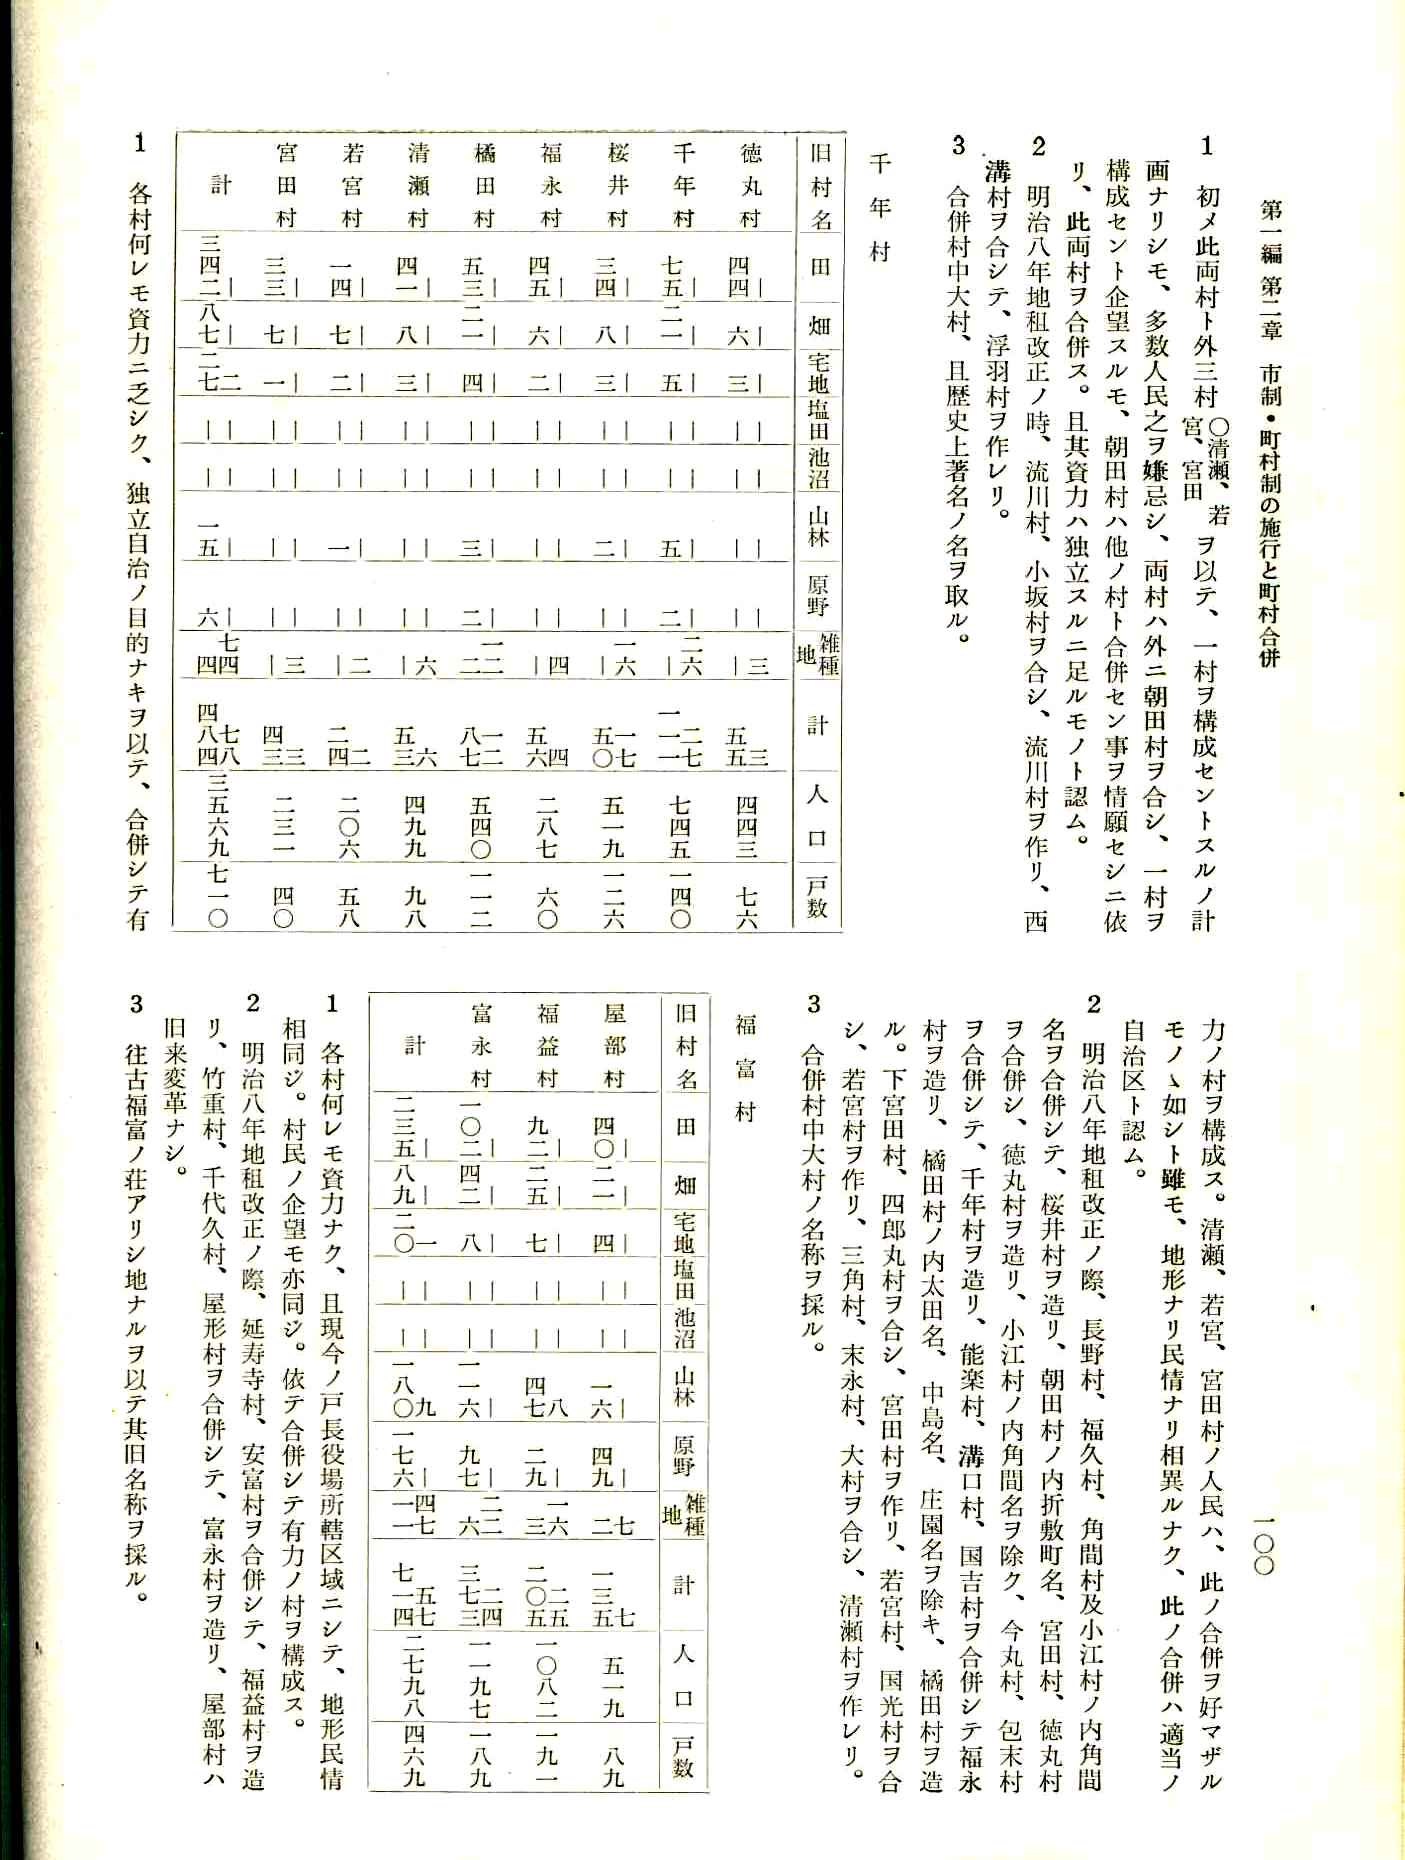 第一編 第二章 市制・町村制の施行と町村合併
1 初メ此両村ト外三村〇清瀬、若宮、宮田ヲ以テ、一村ヲ構成セントスルノ計
画ナリシモ、多数人民之ヲ嫌忌シ、両村ハ外ニ朝田村ヲ合シ、一村ヲ
構成セント企望スルモ、朝田村ハ他ノ村ト合併セン事ヲ情願セシニ依
リ、此両村ヲ合併ス。且其資力ハ独立スルニ足ルモノト認ム。
2 明治八年地租改正ノ時、流川村、小坂村ヲ合シ、流川村ヲ作リ、西
溝村ヲ合シテ、浮羽村ヲ作レリ。
3 合併村中大村、且歴史上著名ノ名ヲ取ル。
千年村
旧村名 田 畑 宅地 塩田 池沼 山林 原野 雑種地 計 人口 戸数
徳丸村 ｜四四 ｜六 ｜三 ｜｜ ｜｜ ｜｜ ｜｜ 三｜ 三 五五 四四三 七六
千年村 ｜七五 ｜二一 ｜五 ｜｜ ｜｜ ｜五 ｜二 二六｜ 二七 一一一 七四五 一四〇
桜井村 ｜三四 ｜八 ｜三 ｜｜ ｜｜ ｜二 ｜｜ 一六｜ 一七 五〇 五一九 一二六
福永村 ｜四五 ｜六 ｜二 ｜｜ ｜｜ ｜｜ ｜｜ 四｜ 四 五六 二八七 六〇
橘田村 ｜五三 ｜二一 ｜四 ｜｜ ｜｜ ｜三 ｜二 一二 二 一二 八七 五四〇 一一二
清瀬村 ｜四一 ｜八 ｜三 ｜｜ ｜｜ ｜｜ ｜｜ 六｜ 六 五三 四九九 九八
若宮村 ｜一四 ｜七 ｜二 ｜｜ ｜｜ ｜一 ｜｜ 二｜ 二 二四 二〇六 五八
宮田村 ｜三三 ｜七 ｜一 ｜｜ ｜｜ ｜｜ ｜｜ 三｜ 三 四三 二三一 四〇
計 ｜三四二 ｜八七 二 二七 ｜｜ ｜｜ ｜一五 ｜六 七四 四 七八 四八四 三五六九 七一〇
1 各村何レモ資力ニ乏シク、独立自治ノ目的ナキヲ以テ、合併シテ有
力ノ村ヲ構成ス。清瀬、若宮、宮田村ノ人民ハ、此ノ合併ヲ好マザル
モノヽ如シト雖モ、地形ナリ民情ナリ相異ルナク、此ノ合併ハ適当ノ
自治区ト認ム。
2 明治八年地租改正ノ際、長野村、福久村、角間村及小江村ノ内角間
名ヲ合併シテ、桜井村ヲ造リ、朝田村ノ内折敷町名、宮田村、徳丸村
ヲ合併シ、徳丸村ヲ造リ、小江村ノ内角間名ヲ除ク、今丸村、包末村
ヲ合併シテ、千年村ヲ造リ、能楽村、溝口村、国吉村ヲ合併シテ福永
村ヲ造リ、橘田村ノ内太田名、中島名、庄園名ヲ除キ、橘田村ヲ造
ル。下宮田村、四郎丸村ヲ合シ、宮田村ヲ作リ、若宮村、国光村ヲ合
シ、若宮村ヲ作リ、三角村、末永村、大村ヲ合シ、清瀬村ヲ作レリ。
3 合併村中大村ノ名称ヲ採ル。
福富村
旧村名 田 畑 宅地 塩田 池沼 山林 原野 雑種地 計 人口 戸数
屋部村 ｜四〇 ｜二一 ｜四 ｜｜ ｜｜ ｜一六 ｜四九 七 二 七 一三五 五一九 八九
福益村 ｜九二 ｜二五 ｜七 ｜｜ ｜｜ 八 四七 ｜二九 一六 三 二五 二〇五 一〇八二 一九一
富永村 ｜一〇二 ｜四二 ｜八 ｜｜ ｜｜ ｜一一六 ｜九七 二二 六 二四 三七三 一一九七 一八九
計 ｜二三五 ｜八九 一 二〇 ｜｜ ｜｜ 九 一八〇 ｜一七六 四七 一一 五七 七一四 二七九八 四六九
1 各村何レモ資力ナク、且現今ノ戸長役場所轄区域ニシテ、地形民情
相同ジ。村民ノ企望モ亦同ジ。依テ合併シテ有力ノ村ヲ構成ス。
2 明治八年地租改正ノ際、延寿寺村、安富村ヲ合併シテ、福益村ヲ造
リ、竹重村、千代久村、屋形村ヲ合併シテ、富永村ヲ造リ、屋部村ハ
旧来変革ナシ。
3 往古福富ノ荘アリシ地ナルヲ以テ其旧名称ヲ採ル。
一〇〇